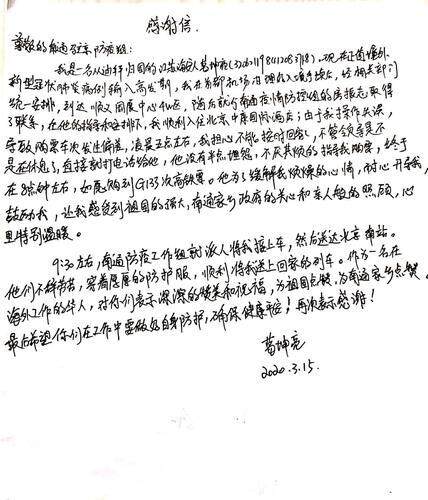 感谢信
尊敬的南通驻京防疫组:
我是一名从迪拜归国的江苏海安人葛坤亮(320611198412083718)。现在正值境外
新型冠状肺炎病例输入高发期,我在首都机场办理完入境手续后,经相关部门
统一安排,到达顺义国展中心W2区,随后就与南通疫情防控组的房振志取得
了联系,在他的指导和安排下,我顺利入住北京中康国际酒店;由于我操作失误,
导致购票车次发生偏差,凌晨三点左右,我担心不能按时回家,不管领导是不
是在休息了,直接就打电话给他,他没有半点抱怨,不厌其烦的指导我购票,终于
在8点钟左右,如愿购到G133次高铁票。他为了缓解我烦燥的心情,耐心开导我,
鼓励我,让我感受到祖国的强大,南通家乡政府的关心和亲人般的照顾,心
里特别温暖。
9:30左右,南通防疫工作组就派人将我接上车,然后送达北京南站。
他们不辞劳苦,穿着厚厚的防护服,顺利将我送上回家的列车。作为一名在
海外工作的华人,对你们表示深深的赞美和祝福,为祖国点赞,为南通家乡点赞。
最后希望你们在工作中要做好自身防护,确保健康平安!再次表示感谢!
葛坤亮
2020.3.15.